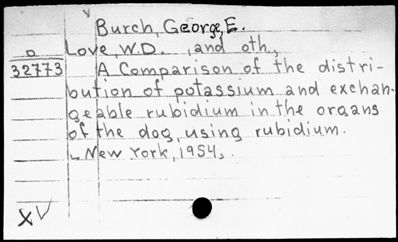 Burch, George, E.
o Love, W.D. , and oth.,
32773 A Comparison of the distri-
bution of potassium and exchan-
geable rubidium in the organs
of the dog, using rubidium.
New York, 1954,.
XV